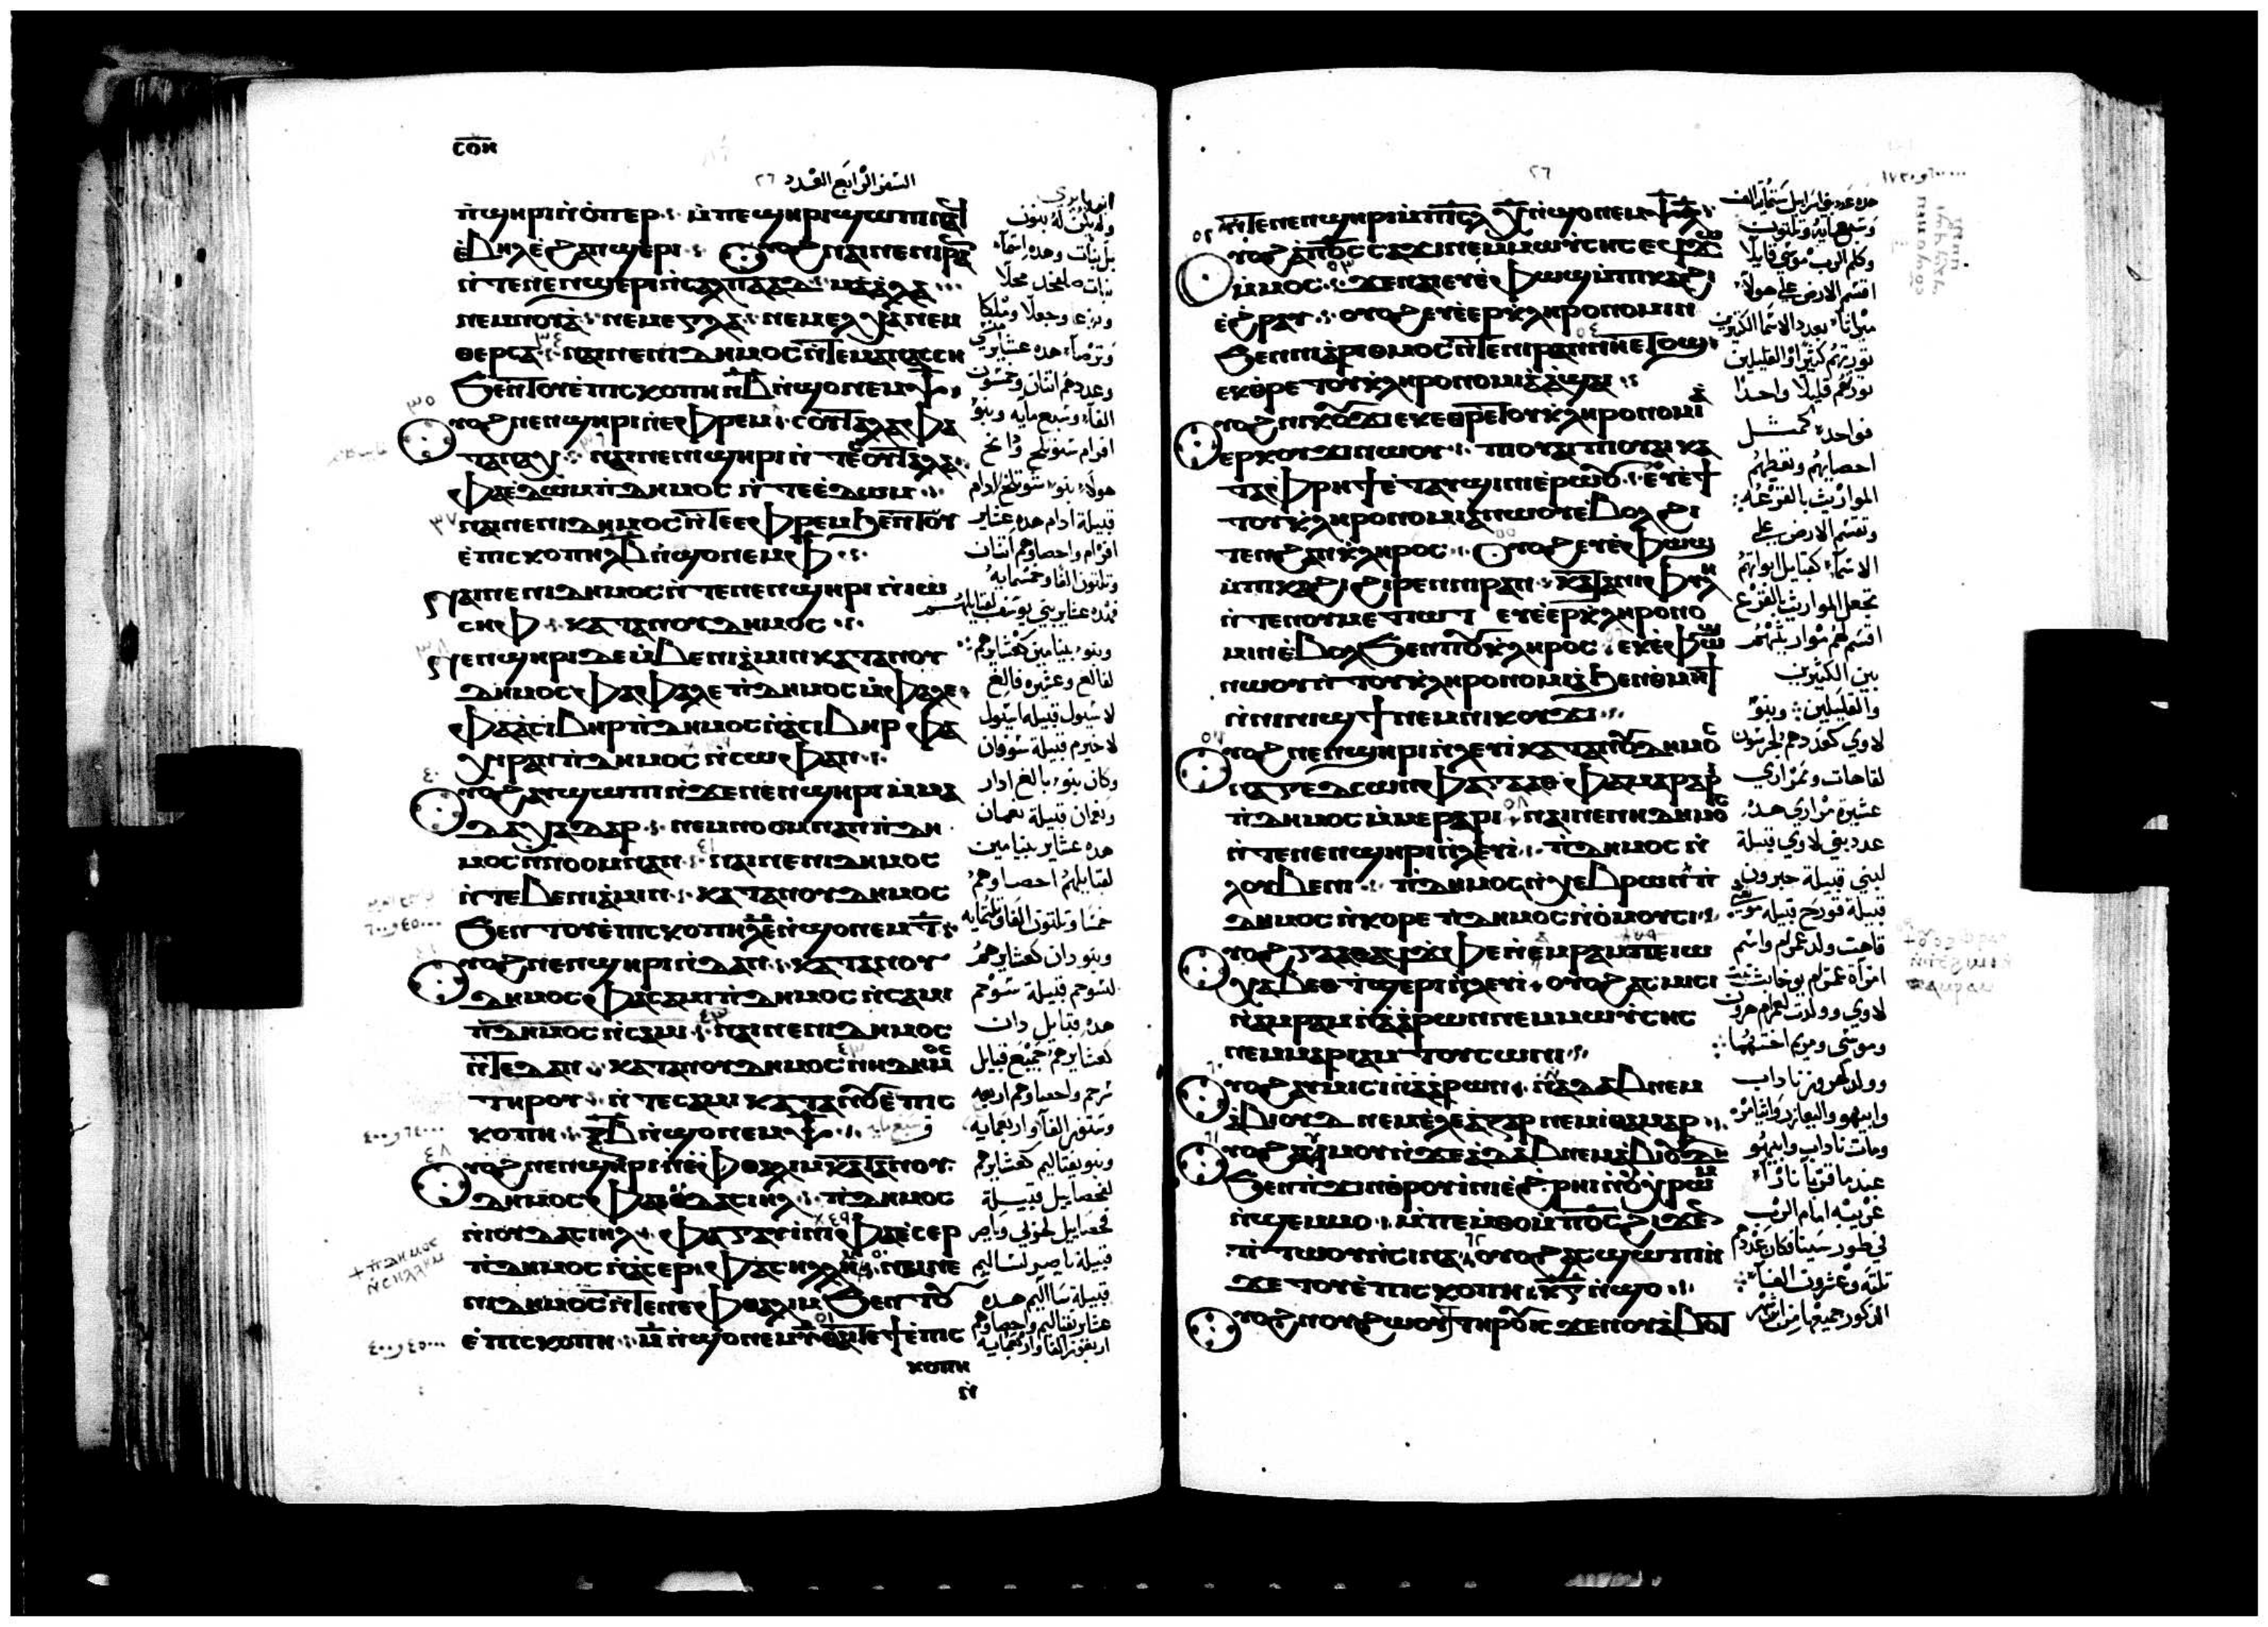 ⲥⲟⲏ
السفر الرابع العدد ٢٦
ⲛ̀ϣⲏⲣⲓ ⲛ̀ⲟⲡⲉⲣ ⁖ ⲙ̀ⲡⲉ ϣⲏⲣⲓ ϣⲱⲡⲓ
ⲉ̀ⲃⲏⲗ ⲉ̀ϩⲁⲛϣⲉⲣⲓ ⁖ ⲟⲩⲟϩ ⲛⲁⲓ ⲛⲉ ⲛⲓⲣⲁ
ⲛ̀ⲧⲉ ⲛⲉⲛϣⲉⲣⲓ ⲛ̀ⲥⲁⲗⲡⲁⲁⲇ ⁖ ⲙⲁⲗⲁ
ⲛⲉⲙ ⲛⲟⲩⲁ ⁖ ⲛⲉⲙ ⲉⲅⲗⲁ ⁖ ⲛⲉⲙ ⲉⲗⲭⲁ ⲛⲉⲙ
ⲑⲉⲣⲥⲁ ⁖ ⲛⲁⲓ ⲛⲉ ⲛⲓⲇⲏⲙⲟⲥ ⲛ̀ⲧⲉ ⲙⲁⲛⲁⲥⲥⲏ
ϧⲉⲛ ⲧⲟⲩⲉ̀ⲡⲓⲥⲕⲟⲡⲏ ⲛ̅ⲃ̅ ⲛ̀ϣⲟ ⲛⲉⲙ ⲯ̅
٣٥
ⲟⲩⲟϩ ⲛⲉⲛϣⲏⲣⲓ ⲛ̀ⲉⲫⲣⲉⲙ ⁖ ⲥⲟⲩⲧⲁⲗⲁ ⲫⲁ
ⲧⲁⲛⲁⲭ ⁖ ⲛⲁⲓ ⲛⲉ ⲛⲉⲛϣⲏⲣⲓ ⲛ̀ⲧⲉ ⲥⲟⲩⲧⲁⲗⲁ
ⲫⲁ ⲉ̀ⲇⲱⲙ ⲡ̀ⲇⲏⲙⲟⲥ ⲛ̀ⲧⲉ ⲉ̀ⲇⲱⲙ ⁖
٣٧
ⲛⲁⲓ ⲛⲉ ⲛⲓⲇⲏⲙⲟⲥ ⲛ̀ⲧⲉ ⲉⲫⲣⲉⲙ ϧⲉⲛ ⲧⲟⲩ
ⲉ̀ⲡⲓⲥⲕⲟⲡⲏ ⲗ̅ⲃ̅ ⲛ̀ϣⲟ ⲛⲉⲙ ⲫ̅ ⁖
ⲛⲁⲓ ⲛⲉ ⲛⲓⲇⲏⲙⲟⲥ ⲛ̀ⲧⲉ ⲛⲉⲛϣⲏⲣⲓ ⲛ̀ⲓⲱ
ⲥⲏⲫ ⁖ ⲕⲁⲧⲁ ⲛⲟⲩⲇⲏⲙⲟⲥ ⁖
٣٨
ⲛⲉⲛϣⲏⲣⲓ ⲇⲉ ⲙ̀ⲃⲉⲛⲓⲁⲙⲓⲛ ⲕⲁⲧⲁ ⲛⲟⲩ
ⲇⲏⲙⲟⲥ ⲫⲁ ⲫⲁⲗⲉ ⲡ̀ⲇⲏⲙⲟⲥ ⲙ̀ⲫⲁⲗⲉ
ⲫⲁ ⲁ̀ⲥⲓⲃⲏⲣ ⲡ̀ⲇⲏⲙⲟⲥ ⲛ̀ⲁ̀ⲥⲓⲃⲏⲣ ⲫⲁ
ⲭⲓⲣⲁⲛ ⲡ̀ⲇⲏⲙⲟⲥ ⲛ̀ⲥⲱⲫⲁⲛ ⁖
٤٠
ⲟⲩⲟϩ ⲁⲩϣⲱⲡⲓ ⲛ̀ϫⲉ ⲛⲉⲛϣⲏⲣⲓ ⲙ̀ⲙⲁ
ⲇⲁⲭⲁⲇⲁⲣ ⁖ ⲛⲉⲙ ⲛⲟⲟⲙⲛⲁⲛ ⲡ̀ⲇⲏ
ⲙⲟⲥ ⲛ̀ⲛⲟⲟⲙⲛⲁⲛ ⁖ ⲛⲁⲓ ⲛⲉ ⲛⲓⲇⲏⲙⲟⲥ
ⲛ̀ⲧⲉ ⲃⲉⲛⲓⲁⲙⲓⲛ ⁖ ⲕⲁⲧⲁ ⲛⲟⲩⲇⲏⲙⲟⲥ
ϧⲉⲛ ⲧⲟⲩⲉ̀ⲡⲓⲥⲕⲟⲡⲏ ⲗ̅ⲉ̅ ⲛ̀ϣⲟ ⲛⲉⲙ ⲧ̅ ⁖
ⲟⲩⲟϩ ⲛⲉⲛϣⲏⲣⲓ ⲛ̀ⲇⲁⲛ ⁖ ⲕⲁⲧⲁ ⲛⲟⲩ
ⲇⲏⲙⲟⲥ ⲫⲁ ⲥⲁⲙⲓ ⲡ̀ⲇⲏⲙⲟⲥ ⲛ̀ⲥⲁⲙⲓ
ⲡ̀ⲇⲏⲙⲟⲥ ⲛ̀ⲥⲁⲙⲓ ⁖ ⲛⲁⲓ ⲛⲉ ⲛⲓⲇⲏⲙⲟⲥ
ⲛ̀ⲧⲉ ⲇⲁⲛ ⁖ ⲕⲁⲧⲁ ⲛⲟⲩⲇⲏⲙⲟⲥ ⲛⲓⲇⲏⲙⲟⲥ
ⲧⲏⲣⲟⲩ ⁖ ⲛ̀ⲧⲉ ⲥⲁⲙⲓ ⲕⲁⲧⲁ ⲛⲟⲩⲉ̀ⲡⲓⲥ
ⲕⲟⲡⲏ ⁖ ⲝ̅ⲃ̅ ⲛ̀ϣⲟ ⲛⲉⲙ ⲯ̅ ⁖
٤٨
ⲟⲩⲟϩ ⲛⲉⲛϣⲏⲣⲓ ⲛ̀ⲛⲉⲫⲑⲁⲗⲓⲙ ⲕⲁⲧⲁ ⲛⲟⲩ
ⲇⲏⲙⲟⲥ ⲫⲁ ⲓⲟⲩⲇⲁⲥⲓⲏⲗ ⁖ ⲡ̀ⲇⲏⲙⲟⲥ
ⲛ̀ⲓⲟⲩⲇⲁⲥⲓⲏⲗ ⁖ ⲫⲁ ⲅⲁⲩⲛⲓ ⲛⲓⲉ ⲫⲁ ⲓⲉⲥⲉⲣ
ⲡ̀ⲇⲏⲙⲟⲥ ⲛ̀ⲁⲥⲉⲣⲓ ⲫⲁ ⲥⲏⲗⲗⲏⲙ ⁖ ⲛⲁⲓ ⲛⲉ
ⲛⲓⲇⲏⲙⲟⲥ ⲛ̀ⲧⲉ ⲛⲉⲫⲑⲁⲗⲓⲙ ϧⲉⲛ ⲧⲟⲩ
ⲉ̀ⲡⲓⲥⲕⲟⲡⲏ ⁖ ⲙ̅ ⲛ̀ϣⲟ ⲛⲉⲙ ⲑⲁⲓ ⲧⲉ ϯⲉ̀ⲡⲓⲥ
ⲕⲟⲡⲏ
ⲛ̀
ⲡ̀ⲇⲏⲙⲟⲥ
ⲛ̀ⲥⲏⲗⲗⲏⲙ
وله يكن له بنون
بل بنات وهذه اسما
بنات صلفحد محلا
ونوعا وجعلا وملكا
وترصا هذه عشاير
وعددهم اثنان وخمسون
الفا وسبع مايه وبنو
افرام شوتلح وتانخ
هولاء بنو شوتلح ادام
قبيلة ادام هذه عشاير
افرام واحصاوهم اثنان
وثلثون الفا وخمسمايه
فهذه عشاير بني يوسف لقبايلهم
وبنو بنيامين كعشايرهم
لفالغ وعشيره فالغ
لاشبول قبيلة اشبول
لاخيرم قبيلة شوفان
وكان بنو بالغ ادار
ونعمان قبيلة نعمان
هذه عشاير بنيامين
لقبايلهم احصاوهم
خمسا وثلثون الفا وثلثمايه
وبنو دان كعشايرهم
لشوحم قبيلة شوحم
هذه قبايل دان
كعشايرهم جميع قبايل
شرحم واحصاوهم اربعه
وستون الفا واربعمايه
وبنو نفتاليم كعشايرهم
لنحصاييل قبيلة
نحصاييل لجوني وياصر
قبيلة ياصر لشاليم
قبيلة شااليم هذه
عشاير نفتاليم واحصاوهم
اربعون الفا واربعمايه
٢٦
٥٢
ⲛ̀ⲧⲉ ⲛⲉⲛϣⲏⲣⲓ ⲙ̀ⲡⲓⲥ̅ⲗ̅ ⲭ̅ ⲛ̀ϣⲟ ⲛⲉⲙ ⲯ̅ⲗ̅
ⲟⲩⲟϩ ⲁ̀ⲡⲟ̅ⲥ̅ ⲥⲁϫⲓ ⲛⲉⲙ ⲙⲱⲩⲥⲏⲥ ⲉϥϫⲱ
ⲙ̀ⲙⲟⲥ ⁖ ϫⲉ ⲛⲁⲓ ⲉⲩⲉ̀ⲫⲱϣ ⲙ̀ⲡⲕⲁϩⲓ
ⲉ̀ϩⲣⲁⲩ ⁖ ⲟⲩⲟϩ ⲉⲩⲉ̀ⲉⲣⲕⲗⲏⲣⲟⲛⲟⲙⲓⲛ
ϧⲉⲛ ⲡⲓⲁⲣⲓⲑⲙⲟⲥ ⲛ̀ⲧⲉ ⲛⲓⲣⲁⲛ ⲛⲏⲉⲧⲟϣ
ⲉⲕⲑⲣⲉ ⲧⲟⲩⲕⲗⲏⲣⲟⲛⲟⲙⲓⲁ ⲁ̀ϣⲁⲓ ⁖
ⲟⲩⲟϩ ⲛⲓⲕⲟⲩϫⲓ ⲉⲕⲉⲑⲣⲉ ⲧⲟⲩⲕⲗⲏⲣⲟⲛⲟⲙⲓⲁ
ⲉⲣⲕⲟⲩϫⲓ ⲛⲱⲟⲩ ⁖ ⲡⲓⲟⲩⲁⲓ ⲡⲓⲟⲩⲁⲓ ⲕⲁ
ⲧⲁ ⲫⲣⲏϯ ⲉ̀ⲧⲁⲩϣⲓⲛⲓ ⲉ̀ⲣⲱⲟⲩ ⁖ ⲉⲩⲉ̀ϯ
ⲧⲟⲩⲕⲗⲏⲣⲟⲛⲟⲙⲓⲁ ⲛⲱⲟⲩ ⲉ̀ⲃⲟⲗ ϩⲓ
ⲧⲉⲛ ϩⲁⲛⲕⲗⲏⲣⲟⲥ ⁖ ⲟⲩⲟϩ ⲉⲩⲉ̀ⲫⲱϣ
ⲙ̀ⲡⲓⲕⲁϩⲓ ϩⲓⲣⲉⲛ ⲛⲓⲣⲁⲛ ⁖ ⲕⲁⲧⲁ ⲛⲓⲫⲩⲗⲏ
ⲛ̀ⲧⲉ ⲛⲟⲩⲙⲉⲧⲓⲱⲧ ⲉⲩⲉ̀ⲉⲣⲕⲗⲏⲣⲟⲛⲟ
ⲙⲓⲛ ⲉ̀ⲃⲟⲗ ϧⲉⲛ ⲡⲟⲩⲕⲗⲏⲣⲟⲥ ⁖ ⲉⲕⲉ̀ⲫⲱϣ
ⲛⲱⲟⲩ ⲛ̀ⲧⲟⲩⲕⲗⲏⲣⲟⲛⲟⲙⲓⲁ ϧⲉⲛ ⲑⲙⲏϯ
ⲛ̀ⲛⲓⲛⲓϣϯ ⲛⲉⲙ ⲛⲓⲕⲟⲩϫⲓ ⁖
٥٧
ⲟⲩⲟϩ ⲛⲉⲛϣⲏⲣⲓ ⲛ̀ⲗⲉⲩⲓ ⲕⲁⲧⲁ ⲛⲟⲩⲇⲏⲙⲟⲥ
ⲛⲁ ⲅⲉⲇⲥⲱⲛ ⲫⲁ ⲅⲁⲁⲑ ⲫⲁ ⲙⲁⲣⲁⲣⲓ
ⲡ̀ⲇⲏⲙⲟⲥ ⲙ̀ⲙⲉⲣⲁⲣⲓ ⁖ ⲛⲁⲓ ⲛⲉ ⲛⲓⲇⲏⲙⲟⲥ
ⲛ̀ⲧⲉ ⲛⲉⲛϣⲏⲣⲓ ⲛ̀ⲗⲉⲩⲓ ⁖ ⲡ̀ⲇⲏⲙⲟⲥ ⲛ̀
ⲗⲟⲩⲃⲉⲛⲓ ⁖ ⲡ̀ⲇⲏⲙⲟⲥ ⲛ̀ⲭⲉⲃⲣⲱⲛ ⲡ̀
ⲇⲏⲙⲟⲥ ⲛ̀ⲕⲟⲣⲉ ⲡ̀ⲇⲏⲙⲟⲥ ⲛ̀ⲟ̀ⲙⲟⲩⲥⲓ ⁖
ⲟⲩⲟϩ ⲅⲁⲁⲑ ⲁϥϫⲫⲉ ⲛ̀ⲉⲙⲣⲁⲙ ⲡⲉ ⲓⲱ
ⲭⲁⲃⲉⲑ ⲧϣⲉⲣⲓ ⲛ̀ⲗⲉⲩⲓ ⁖ ⲟⲩⲟϩ ⲁⲥⲙⲓⲥⲓ
ⲛ̀ⲁⲙⲣⲁⲙ ⲛ̀ⲁⲁⲣⲱⲛ ⲛⲉⲙ ⲙⲱⲩⲥⲏⲥ
ⲛⲉⲙ ⲙⲁⲣⲓⲁⲙ ⲧⲟⲩⲥⲱⲛⲓ ⁖
٦٠
ⲟⲩⲟϩ ⲁⲩⲙⲓⲥⲓ ⲛ̀ⲁⲁⲣⲱⲛ ⁖ ⲛ̀ⲁⲇⲁⲃ ⲛⲉⲙ
ⲁ̀ⲃⲓⲟⲩⲇ ⲛⲉⲙ ⲉ̀ⲗⲉⲁⲍⲁⲣ ⲛⲉⲙ ⲓⲑⲁⲙⲁⲣ ⁖
٦١
ⲟⲩⲟϩ ⲁϥⲙⲟⲩ ⲛ̀ϫⲉ ⲁⲇⲁⲃ ⲛⲉⲙ ⲁ̀ⲃⲓⲟⲩⲇ
ϧⲉⲛ ⲡ̀ϫⲓⲛⲑⲣⲟⲩⲓⲛⲓ ⲉ̀ϩⲣⲏⲓ ⲛ̀ⲟⲩⲭⲣⲱⲙ
ⲛ̀ϣⲉⲙⲙⲟ ⁖ ⲙ̀ⲡⲉⲙ̀ⲑⲟ ⲙ̀ⲡⲟ̅ⲥ̅ ϩⲓϫⲉⲛ
ⲡ̀ⲧⲱⲟⲩ ⲛ̀ⲥⲓⲛⲁ ⁖ ⲟⲩⲟϩ ⲁⲥϣⲱⲡⲓ ⲛ̀
ϫⲉ ⲧⲟⲩⲉ̀ⲡⲓⲥⲕⲟⲡⲏ ⁖ ⲕ̅ⲅ̅ ⲛ̀ϣⲟ ⁖
ⲟⲩⲟϩ ⲛⲟⲩϩⲱⲟⲩⲧ ⲧⲏⲣⲟⲩ ⲓⲥϫⲉⲛ ⲟⲩⲁ̀ⲃⲟⲧ
هذه عدد بني اسرايل ستمايه الف
وسبع مايه وثلثون
وكلم الرب موسي قايلا
اقسم الارض علي هولاء
ميراثا بعدد الاسما الكثيرين
تورثهم كثيرا والقليلين
تورثهم قليلا واحدا
فواحدا كمثل
احصايهم ونعطيهم
المواريث بالقرعه
وتقسم الارض علي
الاسما كقبايل ابواتهم
تجعل المواريث بالقرع
اقسم لهم مواريثهم
بين الكثيرين
والقليلين وبنو
لاوي كعددهم لجرشون
لقاحات ولمراري
عشيرة مراري هذه
عدد بني لاوي قبيلة
لبني قبيلة حبرون
قبيلة قورح قبيلة موسي
قاحت ولد عمرام واسم
امراة عمرام يوخابث بنت
لاوي وولدت لعمرام هرون
وموسي ومريم اختهما
وولد لهرون ناداب
وابيهو واليعازر وايثامر
ومات ناداب وابيهو
عند ما قربا نارا
غريبة امام الرب
في طور سينا فكان عددهم
ثلثه وعشرون الفا
الذكور جميعها من ابن شهر